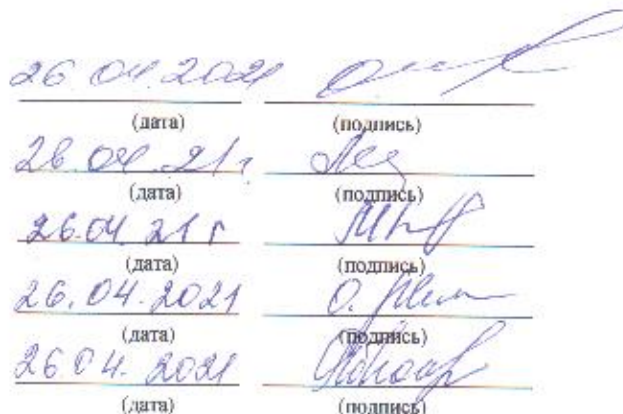 26 04.2021
(дата) (подпись)
26.04.21г
(дата) (подпись)
26.04.21 г
(дата) (подпись)
26.04.2021 О.
(дата) (подпись)
26 04. 2021
(дата) (подпись)